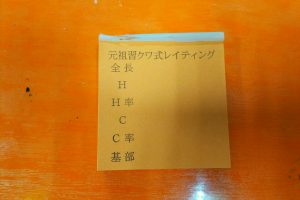 元祖習クワ式レイティング
全長
H
H率
C
C率
基部